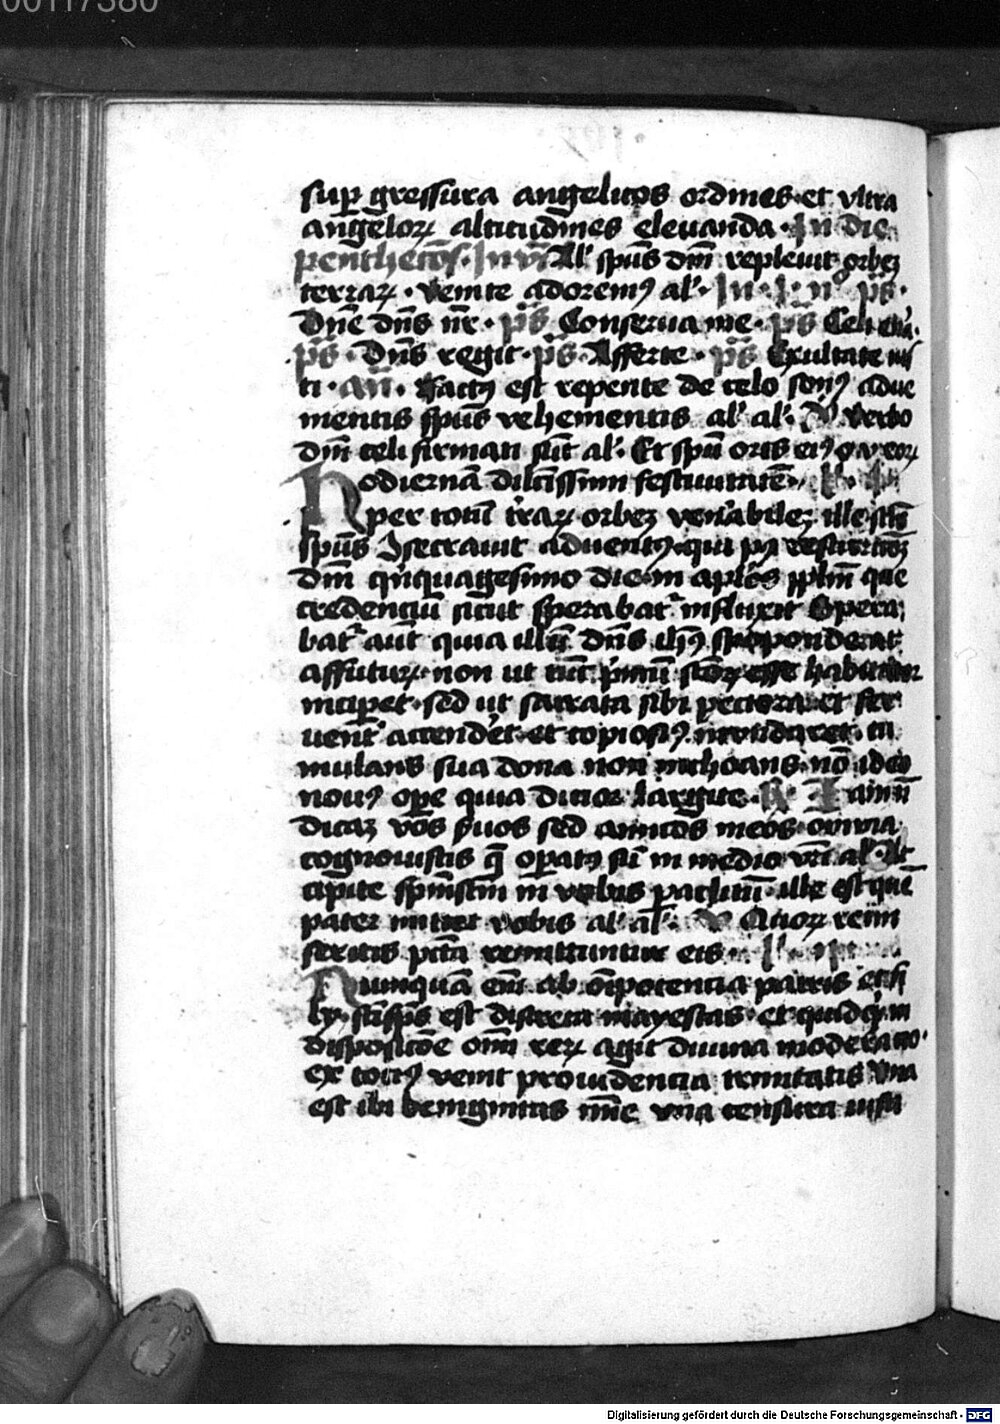 00117380
sup gressura angelicos ordines · et vltra
angeloꝝ altitudines eleuanda · In die
penthecos̄ · In vi᷑ All' spūs dn̄i repleuit orbeꝫ
terraꝝ · venite adoremꝰ al' · In · i · n° p̄s ·
Dn̄e dn̄s nr̄ · p̄s Conserua me · p̄s Celi enā ·
p̄s · Dn̄s regit · p̄s · Afferte · p̄s Exultate ius
ti · an̄ · Factꝰ est repente de celo sonꝰ adue
nientis spūs vehementis al' al' · V verbo
dn̄i celi firmati sūt al' · Et spū oris eiꝰ o v eoꝝ
Hodiernā dilcissimi festiuitatē
per totū t'raꝝ orbeꝫ ven'abileꝫ ille scūs
spūs ꝯsecrauit aduentꝰ · qui pꝰ resurrectōꝫ
dn̄i qinquagesimo die in aplōs pplm̄ que
credenciū sicut sperabat᷑ influxit Spera
bat᷑ aūt quia illū dn̄s ihꝰ spoponderat
affuturꝝ · non ut tūc p'mū scōꝝ esse habitator
incipet · sed ut sacrata sibi pectora et fer
uenc' accenderet · et copiosiꝰ inundaret · cu
mulans sua dona non inchoans · nō ideo
nouꝰ ope quia dicior largite · R Iam nō
dicaꝫ vōs s'uos sed amicos meos · omnia
cognouistis q̄ opatꝰ sū in medio vr̄i al' · Ac
cipite spm̄scm̄ in vobis paclitū · ille est quē
pater mittet vobis al' al' · V Quoꝝ remi
seritis pctā remittuntur eis ·
Nunquā em̄ ab oīpotencia patris et fi
ly · scīsps̄ est discreta mayestas · et quidq'd in
disposicōe om̄i reꝝ agit diuina moderacio ·
ex tociꝰ venit prouidencia trinitatis Vna
est ibi benignitas mīe vna censura iusti
Digitalisierung gefördert durch die Deutsche Forschungsgemeinschaft - DFG